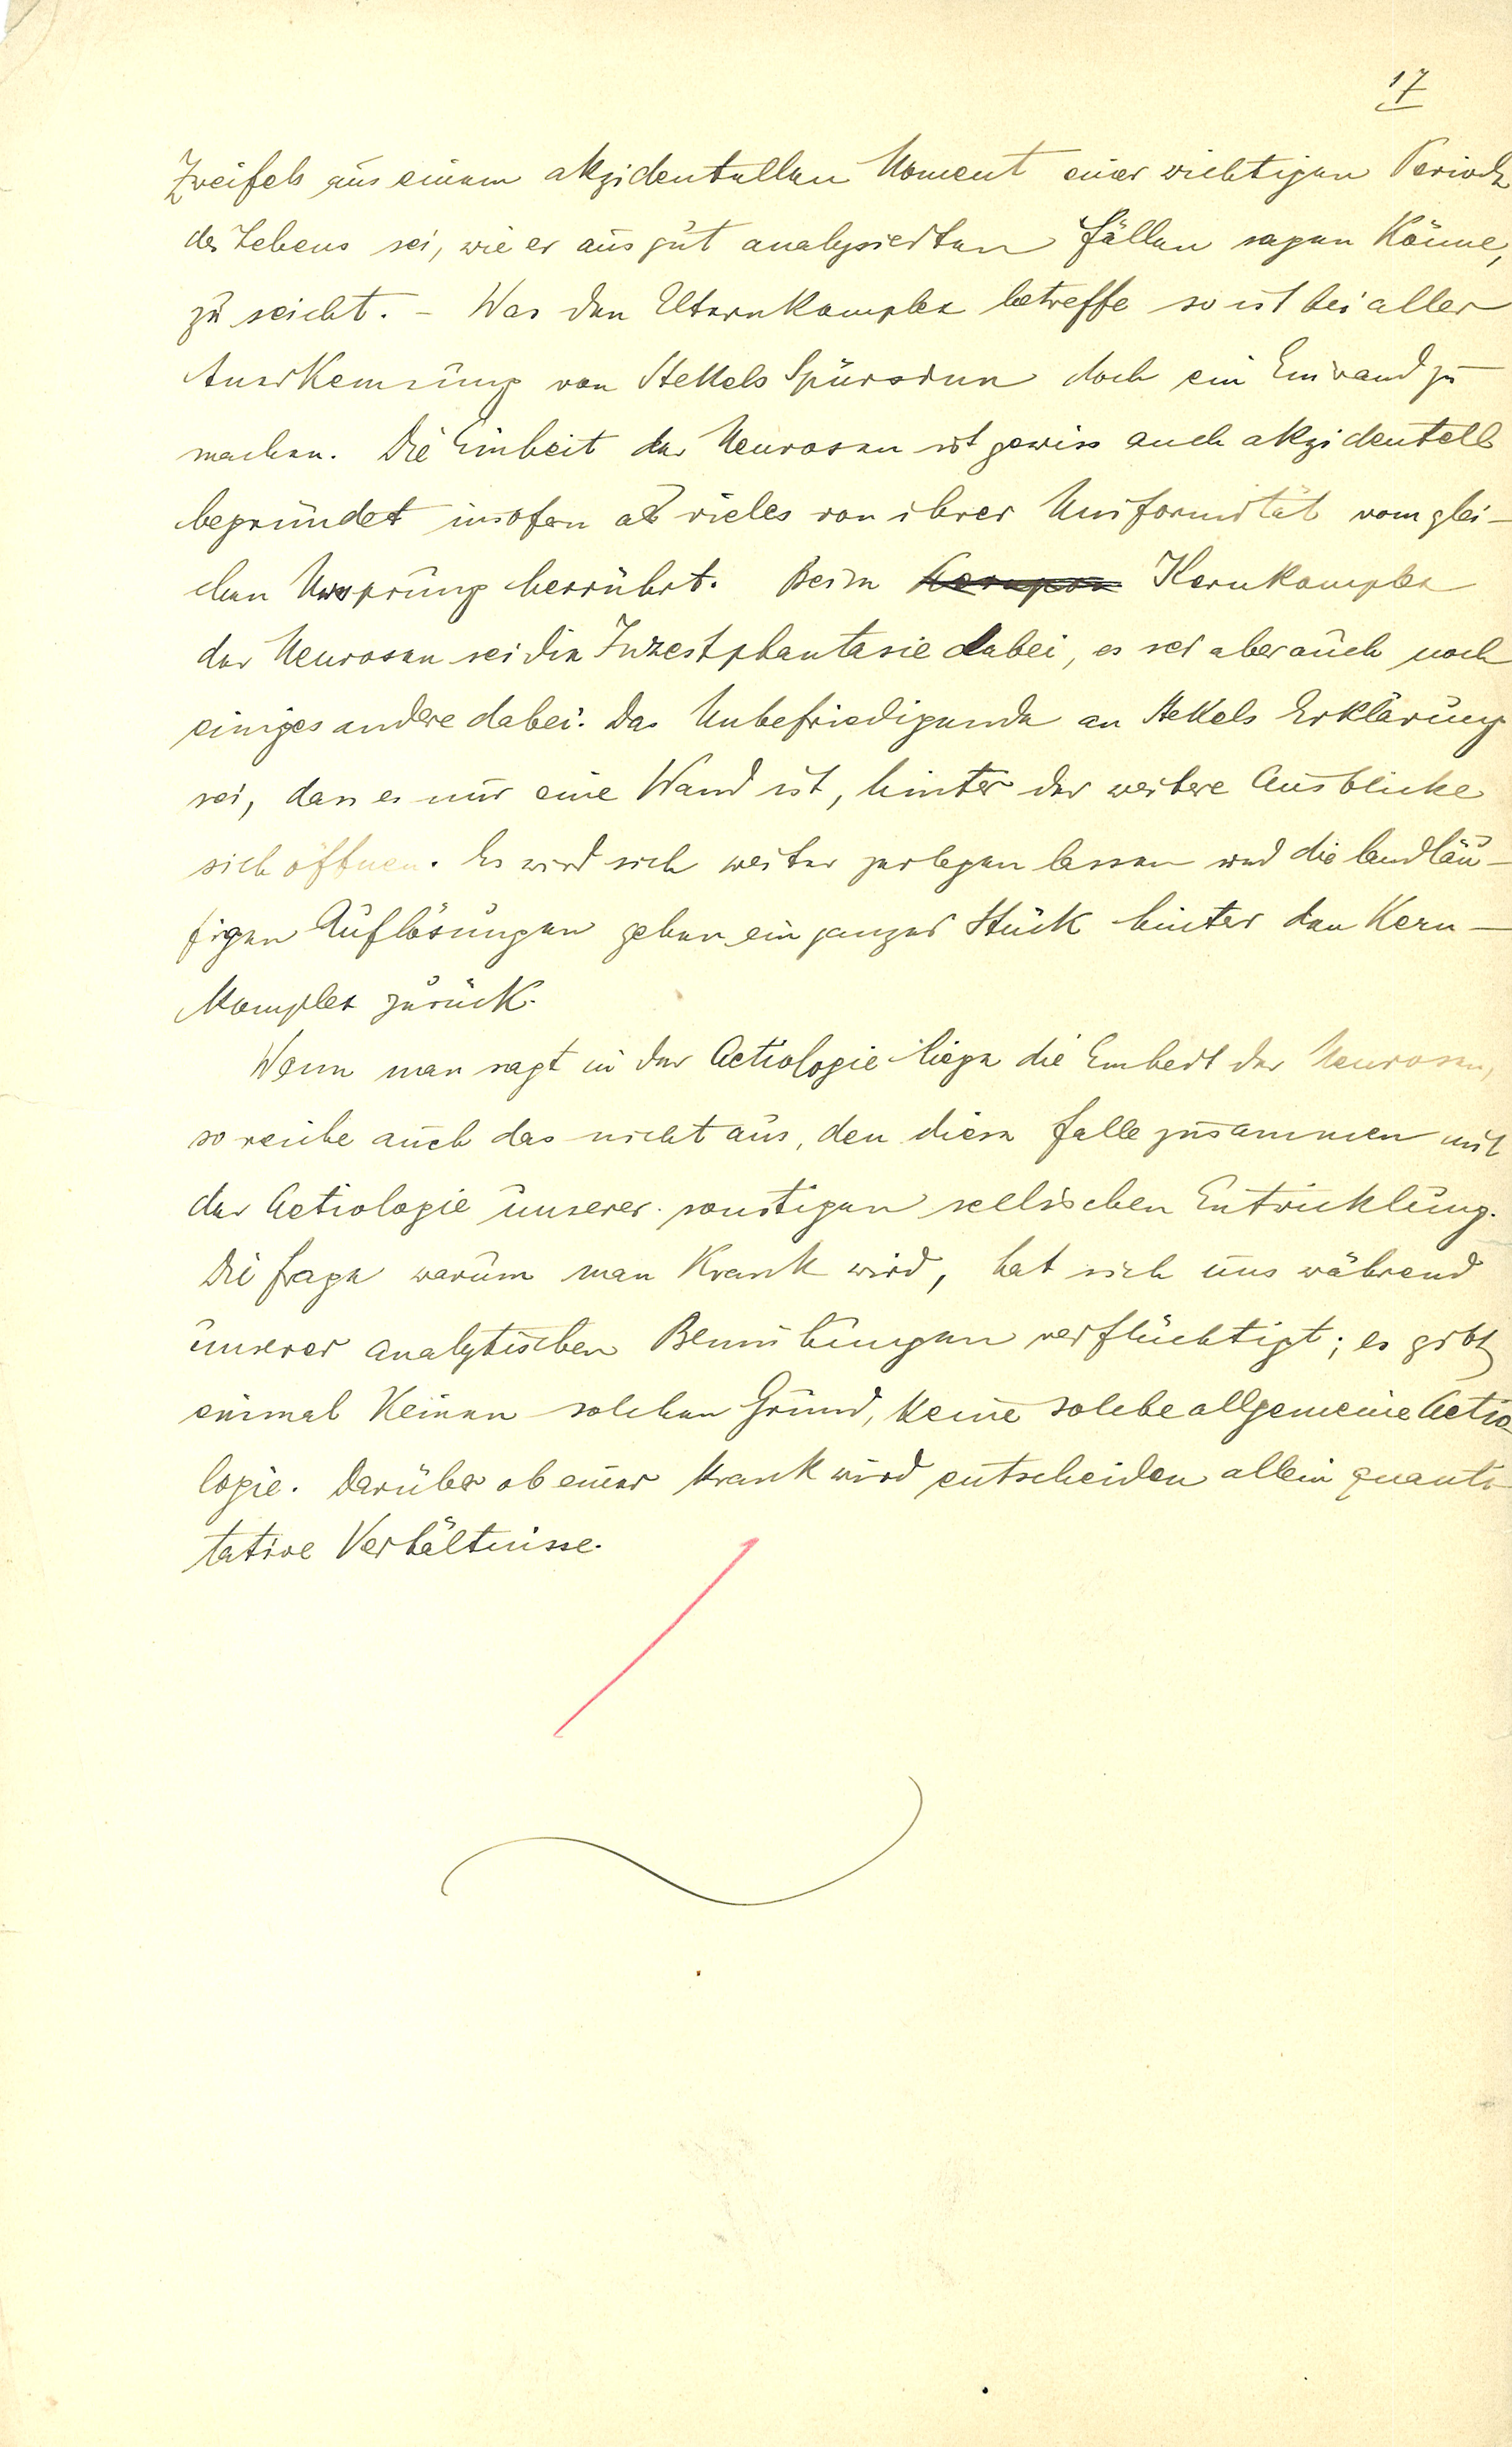 17
Zweifels aus einem akzidentellen Moment einer wichtigen Periode
des Lebens sei, wie er aus gut analysierten Fällen sagen könne,
zu seicht. – Was den Elternkomplex betreffe so ist bei aller
Anerkennung von Stekels Spürsinn doch ein Einwand zu
machen. Die Einheit der Neurosen ist gewiss auch akzidentell
begründet insofern als vieles von ihrer Uniformität vom glei-
chen Ursprung herrührt. Beim Kernkomplex
der Neurosen sei die Inzestphantasie dabei, es sei aber auch noch
einiges andere dabei. Das Unbefriedigende an Stekels Erklärung
sei, dass es nur eine Wand ist, hinter der weitere Ausblicke
sich öffnen. Es wird sich weiter zerlegen lassen und die landläu-
figen Auflösungen gehen ein ganzes Stück hinter den Kern-
komplex zurück.
Wenn man sagt in der Aetiologie liege die Einheit der Neurosen,
so reiche auch das nicht aus, den diese falle zusammen mit
der Aetiologie unserer sonstigen seelischen Entwicklung.
Die Frage warum man krank wird, hat sich uns während
unserer analytischen Bemühungen verflüchtigt; es gibt
einmal keinen solchen Grund, keine solche allgemeine Aetio-
logie. Darüber ob einer krank wird entscheiden allein quanti-
tative Verhältnisse.